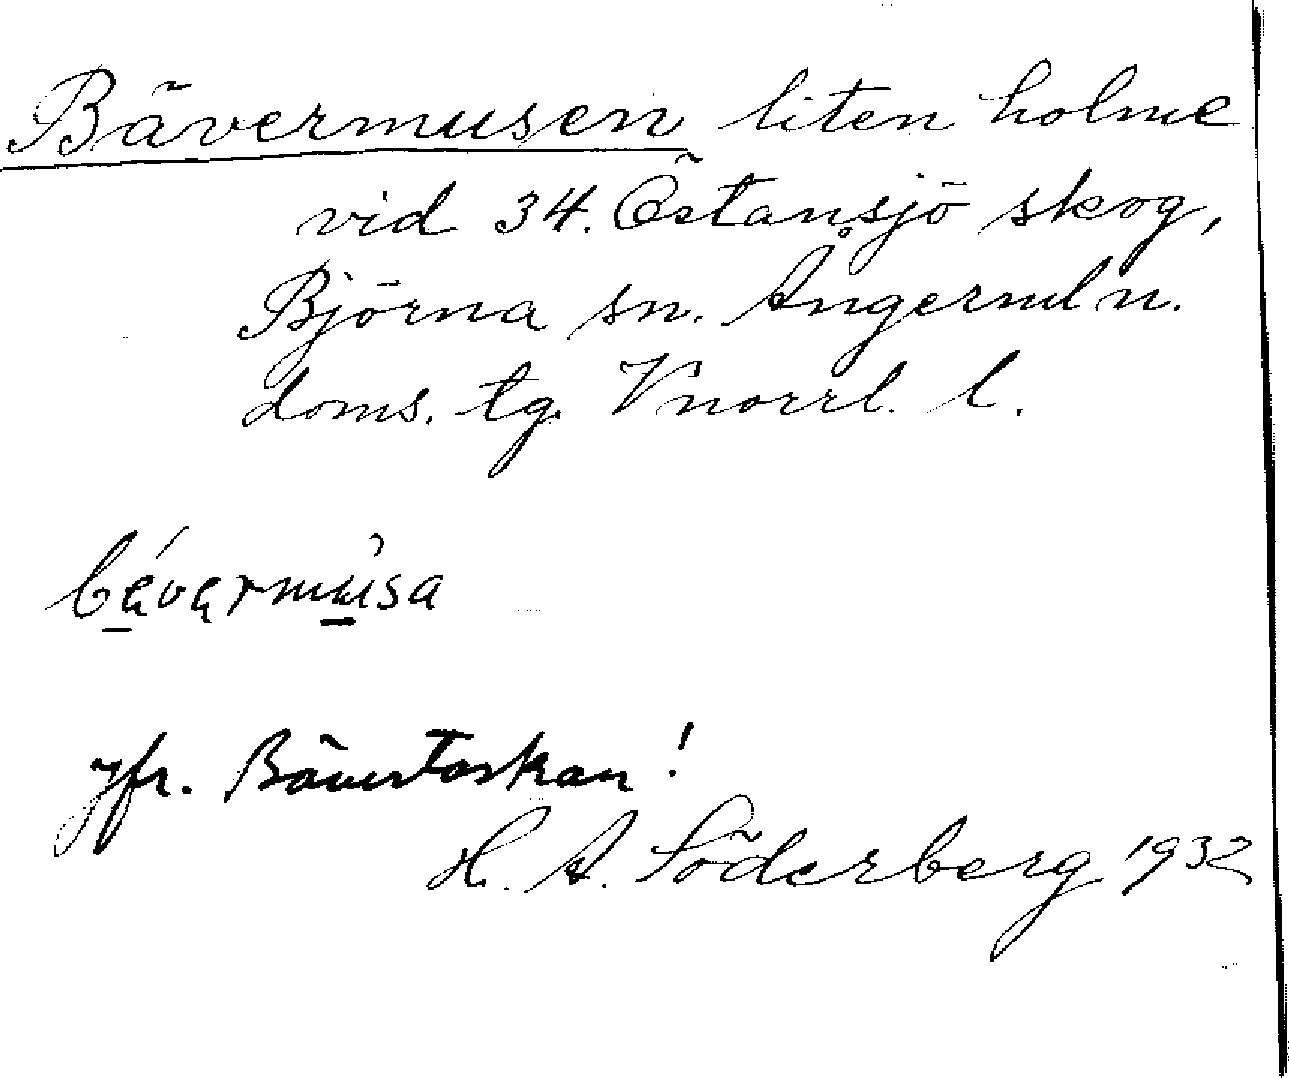 Bävermusen liten holme
vid 34. Östansjö skog,
Björna sn. Ångerml n.
doms. tg. Vnorrl. l.
bävärmusa
jfr. Bävertaskan!
H. A. Söderberg 1932